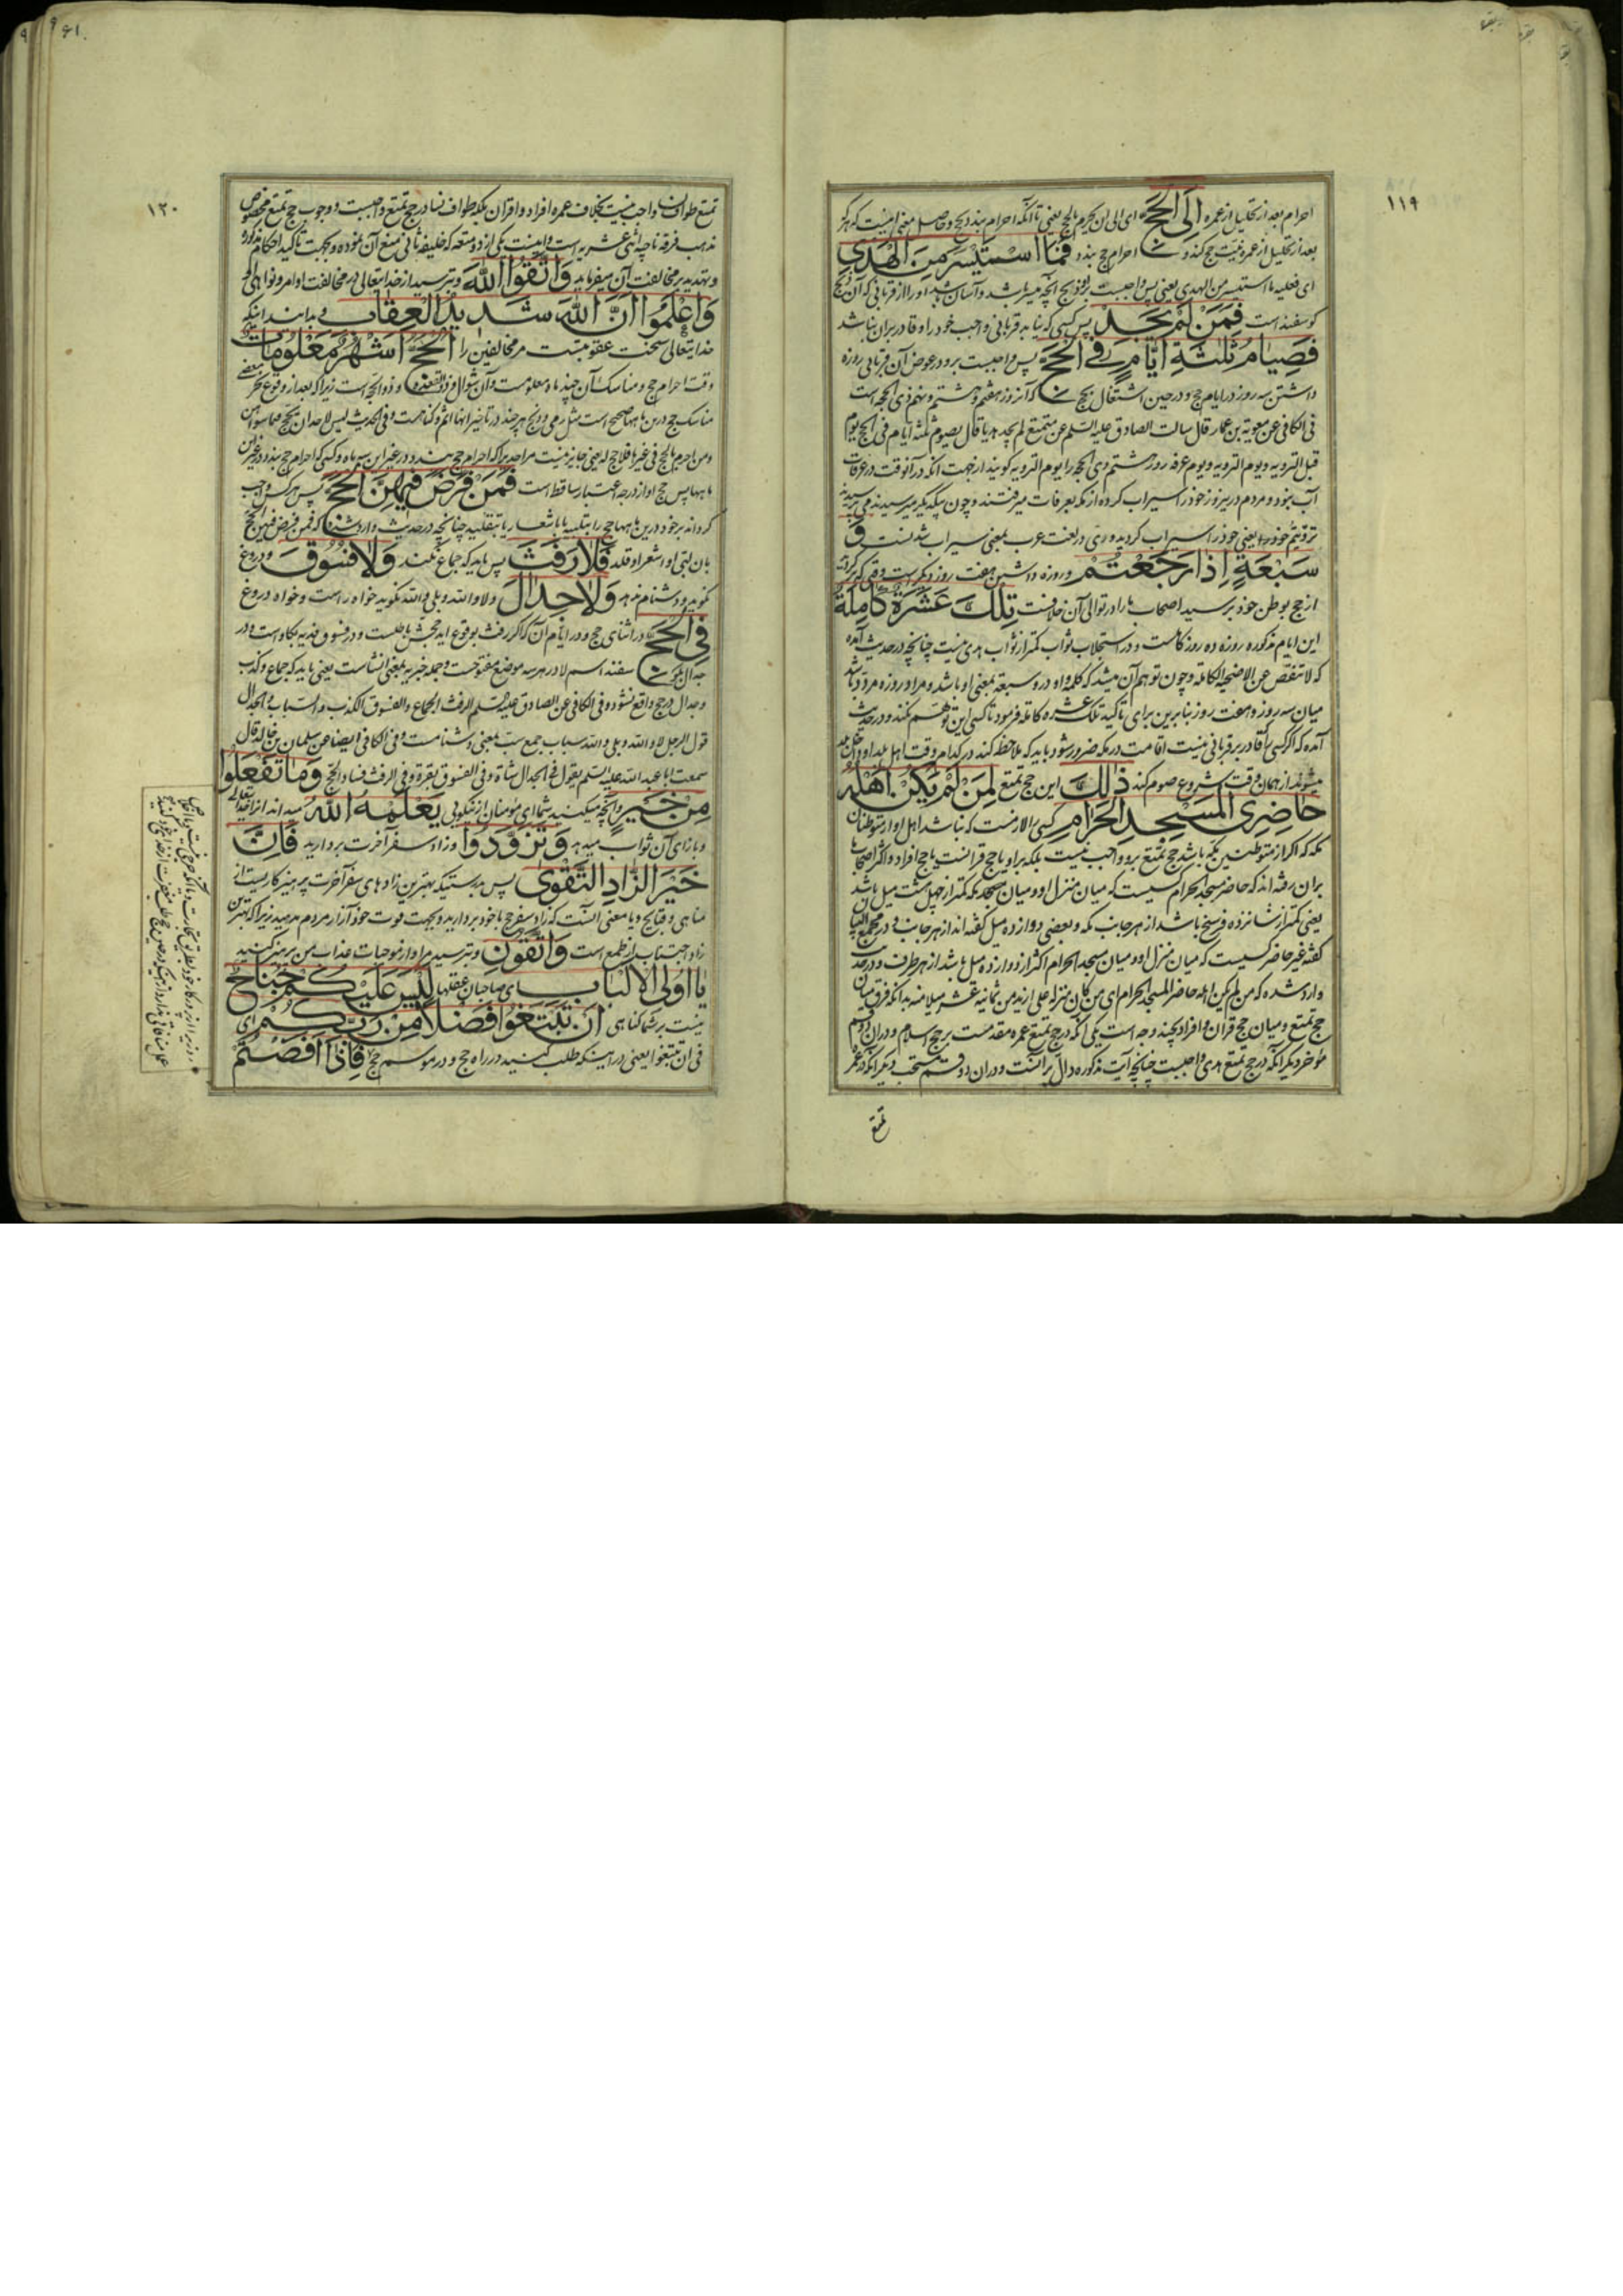 ۱۱۹
احرام بعد از تحلیل از عمره اِلَی الحَجِّ ای الی ان یحرم بالحج یعنی تا آنکه احرام بندد بحج و حاصل معنی اینست که هر که
بعد از تحلیل از عمره نیت حج کند و احرام حج بندد فَمَا اسْتَیْسَرَ مِنَ الْهَدْیِ
ای فعلیه ما استیسر من الهدی یعنی پس واجبست برو ذبح آنچه میسر باشد و آسان شود او را از قربانی که آن ذبح
کوسفند است فَمَنْ لَمْ یَجِدْ پس کسی که نیابد قربانی واجب خود را و قادر بران نباشد
فَصِیَامُ ثَلٰثَةِ اَیَّامٍ فِی الْحَجِّ پس واجبست برو در عوض آن قربانی روزه
داشتن سه روز در ایام حج و در حین اشتغال بحج که آن روز هفتم و هشتم و نهم ذی الحجه است
فی الکافی عن معویة بن عمار قال سالت الصادق علیه السلم عن متمتع لم یجد هدیا قال یصوم ثلثه ایام فی الحج یوم
قبل الترویه و یوم الترویه و یوم عرفه روز هشتم ذی الحجه را یوم الترویه کویند از جهت آنکه در آنوقت در عرفات
آب نبود و مردم درین روز خود را سیراب کرده از مکه بعرفات میرفتند و چون بیکدیگر میرسیدند می
ترویتم خود را یعنی خود را سیراب کردید و ری در لغت عرب بمعنی سیراب شدنست وَ
سَبْعَةٍ اِذَا رَجَعْتُمْ و روزه داشتن هفت روز دیکر است وقتی که برکردید
از حج بوطن خود برسید اصحاب ما را در توالی آن خلافست تِلْکَ عَشَرَةٌ کَامِلَةٌ
این ایام مذکوره روزه ده روز کاملست و در استجلاب ثواب کمتر از ثواب هدی نیست چنانچه در حدیث آمده
که لا تنقص عن الاضحیه الکامله و چون توهم آن میشد که کلمه واو در و سبعة بمعنی او باشد و مراد روزه مردد باشد
میان سه روز و هفت روز بنابرین برای تاکید تلک عشرة کاملة فرمود تا کسی این توهم نکند و در حدیث
آمده که اکر کسی را که قادر بر قربانی نیست اقامت در مکه ضرور شود باید که ملاحظه کند در کدام وقت اهل بلد او داخل بلد
میشوند از همان وقت شروع صوم کند ذٰلِکَ این حج تمتع لِمَنْ لَمْ یَکُنْ اَهْلُهُ
حَاضِرِی الْمَسْجِدِ الْحَرَامِ کسی را لازمست که نباشد اهل او از متوطنان
مکه که اکر از متوطنین مکه باشد حج تمتع برو واجب نیست بلکه بر او یا حج قرانست یا حج افراد و اکثر اصحاب ما
بران رفته اند که حاضر مسجد الحرام کسیست که میان منزل او و میان مسجد مکه کمتر از چهل هشت میل باشد
یعنی کمتر از شانزده فرسخ باشد از هر جانب مکه و بعضی دوازده میل کفته اند از هر جانب و در مجمع البیان
کفته غیر حاضر کسیست که میان منزل او و میان مسجد الحرام اکثر از دوازده میل باشد از هر طرف و در حدیث
وارد شده که من لم یکن اهله حاضر المسجد الحرام ای من کان منزله علی ازید من ثمانیة عشر میلا منه بدانکه فرق میان
حج تمتع و میان حج قران و افراد بچند وجه است یکی آنکه در حج تمتع عمره مقدمست بر حج اسلام و در ان دو قسم
موخر دیکر آنکه در حج تمتع هدی واجبست چنانچه آیت مذکوره دال بر آنست و در ان دو قسم مستحب دیکر آنکه در عمره
تمتع
۱۲۰
تمتع طواف نسا واجب نیست بخلاف عمره افراد و اقران بلکه طواف نسا در حج تمتع واجبست و وجوب حج تمتع مخصوص
مذهب فرقه ناجیه اثنی عشریه است و اینست یکی از دو متعه که خلیفه ثانی منع آن نموده و بجهت تاکید احکام مذکوره
و تهدید بر مخالفت آن میفرماید وَاتَّقُوا اللّٰهَ و بترسید از خدایتعالی در مخالفت اوامر و نواهی او
وَاعْلَمُوا اَنَّ اللّٰهَ شَدِیدُ الْعِقَابِ و بدانید اینکه
خدایتعالی سخت عقوبتست مر مخالفین را اَلْحَجُّ اَشْهُرٌ مَعْلُومَاتٌ
وقت احرام حج و مناسک آن چند ماه معلومست و آن شوال و ذوالقعده و ذو الحجه است زیرا که بعد از وقوع بعضی
مناسک حج درین ماهها صحیح است مثل رمی و ذبح هر چند در تاخیر آنها اثم و کناهست و فی الحدیث لیس لاحد ان یحج فیما سواهن
و من احرم بالحج فی غیرها فلا حج له یعنی جایز نیست مر احدی را که احرام حج بندد در غیر این سه ماه و کسی که احرام حج بندد در غیر این
ماهها پس حج او از درجه اعتبار ساقط است فَمَنْ فَرَضَ فِیهِنَّ الْحَجَّ پس هر کس واجب
کرداند بر خود درین ماهها حج را بتلبیه یا باشعار یا بتقلید چنانچه در حدیث وارد شده که فمن فرض فیهن الحج
بان لبی او اشعر او قلد فَلَا رَفَثَ پس باید که جماع نکند وَلَا فُسُوقَ و دروغ
نکوید و دشنام ندهد وَلَا جِدَالَ و لا والله و بلی والله نکوید خواه راست و خواه دروغ
فِی الْحَجِّ در اثنای حج و در ایام آن که اکر رفث بوقوع آید حجش باطلست و در فسوق فدیه بکاو است و در
جدال بکوسفند اسم لا در هر سه موضع مفتوحست و جمله خبریه بمعنی انشاست یعنی باید که جماع و کذب
و جدال در حج واقع نشود و فی الکافی عن الصادق علیه السلم الرفث الجماع و الفسوق الکذب و السباب و الجدال
قول الرجل لا والله و بلی والله سباب جمع سبت بمعنی دشنامست و فی الکافی ایضا عن سلیمان بن خالد قال
سمعت ابا عبد الله علیه السلم یقول فی الجدال شاة و فی الفسوق بقرة و فی الرفث فساد الحج وَمَا تَفْعَلُوا
مِنْ خَیْرٍ و آنچه میکنید شما ای مومنان از نیکویی یَعْلَمْهُ اللّٰهُ میداند انرا خدایتعالی
و بازای آن ثواب میدهد وَتَزَوَّدُوا و زاد سفر آخرت بردارید فَاِنَّ
خَیْرَ الزَّادِ التَّقْوٰی پس بدرستیکه بهترین زادهای سفر آخرت پرهیزکاریست از
مناهی و قبایح و یا معنی آنست که زاد سفر حج با خود بردارید و بجهت قوت خود آزار مردم مدهید زیرا که بهترین
زاد اجتناب از طمع است وَاتَّقُونِ و بترسید مرا و از موجبات عذاب من پرهیز کنید
یٰا اُولِی الْاَلْبَابِ ای صاحبان عقلها لَیْسَ عَلَیْکُمْ جُنَاحٌ
نیست بر شما کناهی اَنْ تَبْتَغُوا فَضْلًا مِنْ رَبِّکُمْ ای
فی ان تبتغوا یعنی در اینکه طلب کنید در راه حج و در موسم حج فَاِذَا اَفَضْتُمْ